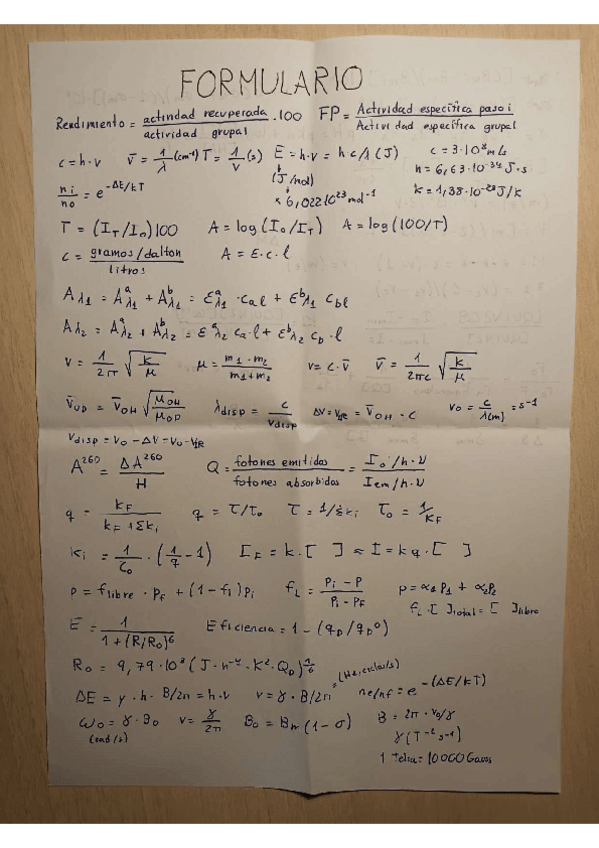 FORMULARIO
Rendimiento = actividad recuperada / actividad grupal . 100   FP = Actividad específica paso i / Actividad específica grupal
c = h · ν   ν̄ = 1/λ (cm⁻¹)   T = 1/ν (s)   E = h·ν = h·c/λ (J)   c = 3·10⁸ m/s
(J/mol)   h = 6,63·10⁻³⁴ J·s
ni/no = e^-ΔE/kT   × 6,022 10²³ mol⁻¹   k = 1,38·10⁻²³ J/K
T = (I_T/I₀)100   A = log(I₀/I_T)   A = log(100/T)
c = gramos/dalton / litros   A = ε·c·l
A_λ1 = A^a_λ1 + A^b_λ1 = ε^a_λ1 · C_a l + ε^b_λ1 C_b l
A_λ2 = A^a_λ2 + A^b_λ2 = ε^a_λ2 C_a · l + ε^b_λ2 C_b · l
ν = 1/2π √(k/μ)   μ = m1 · m2 / m1 + m2   ν = c · ν̄   ν̄ = 1/2πc √(k/μ)
ν̄_OD = ν̄_OH √(μ_OH/μ_OD)   λdisp = c/νdisp   Δν = ν_IR = ν̄_OH · c   ν₀ = c/λ(m) = s⁻¹
νdisp = ν₀ - Δν = ν₀ - ν_IR
A²⁶⁰ = ΔA²⁶⁰ / H   Q = fotones emitidos / fotones absorbidos = I₀/h·ν / Iem/h·ν
q = k_F / k_F + Σk_i   q = τ/τ₀   τ = 1/Σk_i   τ₀ = 1/k_F
K_i = 1/τ₀ · (1/q - 1)   I_F = k · [ ] ≈ I = k q · [ ]
P = f libre · P_F + (1 - f_l) P_i   f_L = P_i - P / P_i - P_F   p = α₁ P₁ + α₂P₂
f_L · [ ]total = [ ]libre
E = 1 / 1 + (R/R₀)⁶   Eficiencia = 1 - (q_D/q_D⁰)
R₀ = 9,79·10³ (J · n⁻⁴ · K² · Q_D)^1/6
ΔE = γ · h · B/2π = h · ν   ν = γ · B/2π = (Herzios/s)   ne/nf = e^-(ΔE/kT)
ω₀ = γ · B₀   ν = γ/2π   B₀ = B_n (1 - σ)   B = 2π · ν₀/γ
(rad/s)   γ (T⁻¹ s⁻¹)
1 Tesla = 10000 Gauss